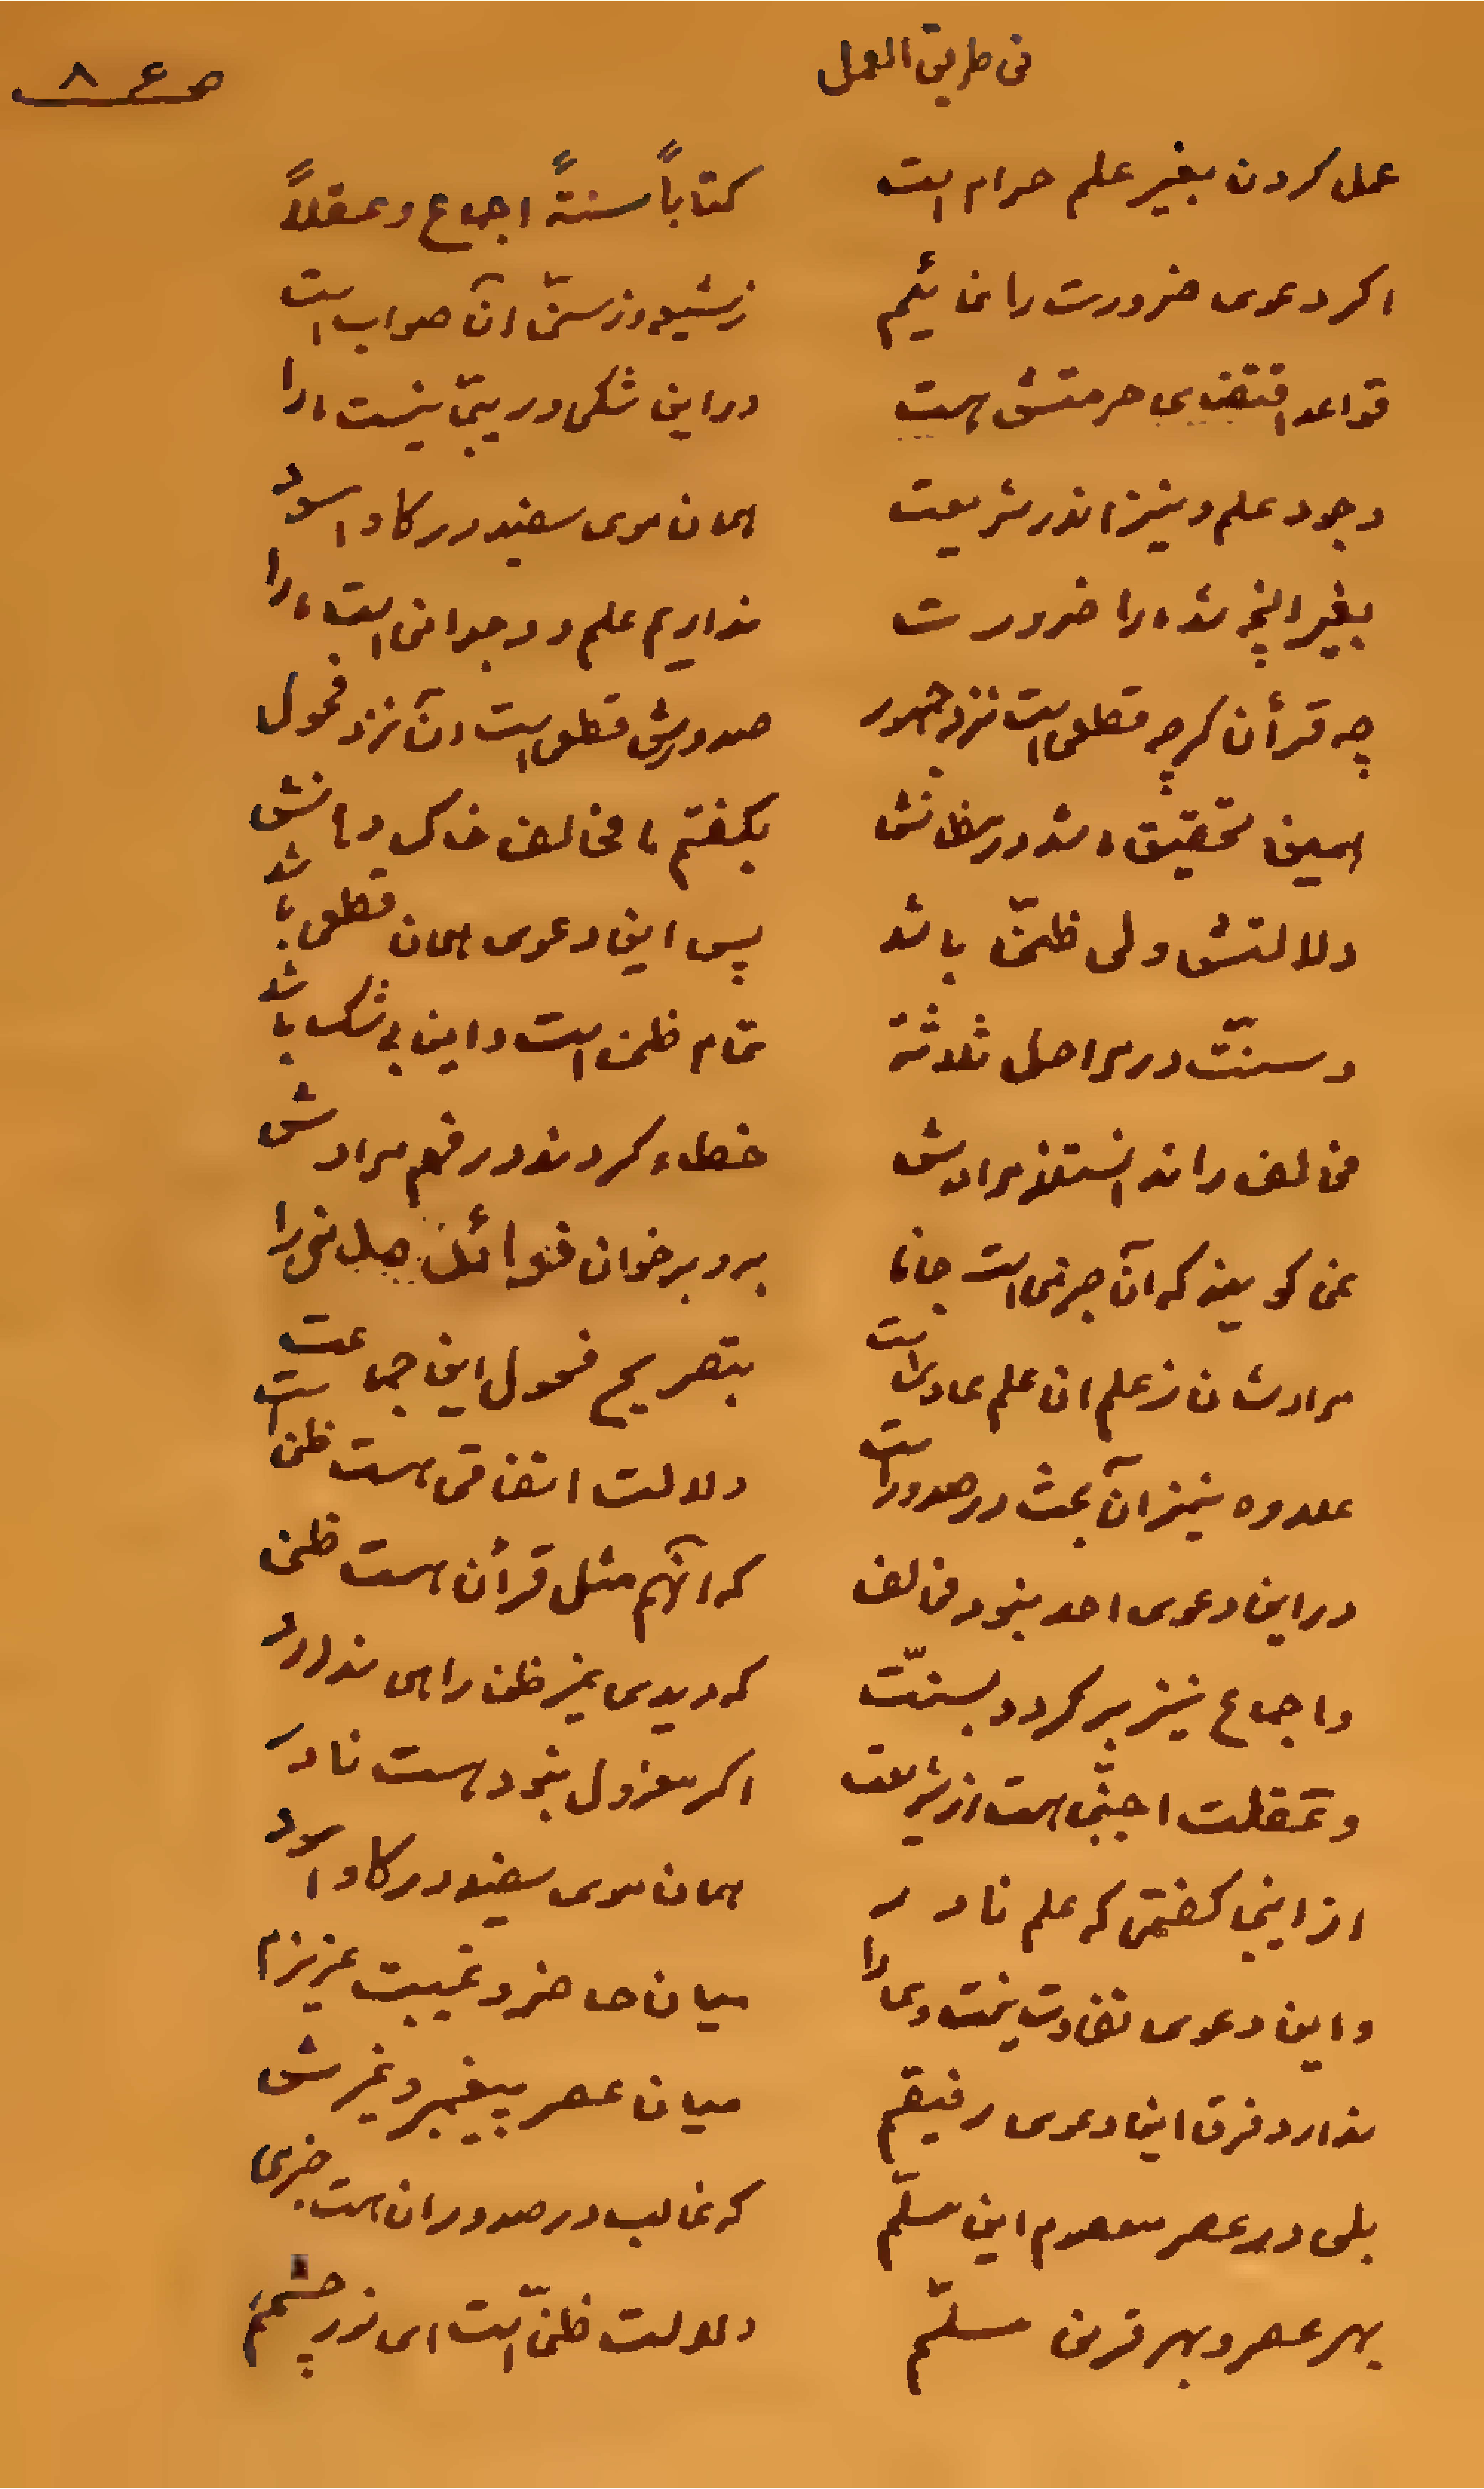 فی طریق العمل
ص ۸۶
عمل کردن بغیر علم حرام است کتاباً سنةً اجماع و عقلاً
اکر دعوی ضرورت را نمائیم ز شیعه و ز سنّی آن صواب است
قواعد اقتضای حرمتش هست در این شکی و ریبی نیست ما را
وجود علم و نیز اندر شریعت همان موی سفید در کاو اسود
بغیر انچه شد ما را ضرورت نداریم علم و وجدانی است ما را
چه قرأن کرچه قطعی است نزد جمهور صدورش قطعی است آن نزد فحول
همین تحقیق ما شد در بطلانش بکفتم با مخالف خاک دهانش
دلالتش ولی ظنّی باشد پس این دعوی همان قطعی باشد
و سنّت در مراحل ثلاثة تمام ظن است و این بی شک باشد
مخالف را ندانستند مرادش خطاء کردند در فهم مرادش
نمی کویند که آن جزمی است جانا برو برخوان فوائد اصل نهم را
مرادشان ز علم ان علم عادی است بتصریح فحول این جماعت
علاوه نیز آن بحث در صدور است دلالت اتفاقی هست ظن است
در این دعوی احد بنود مخالف که آنهم مثل قرأن هست ظنی
و اجماع نیز برکردد بسنّت که دیدی غیر ظن راهی ندارد
و عقلت اجنبی هست از شریعت اکر معزول بنود هست نادر
از اینجا کفتمی که علم نادر همان موی سفید در کاو اسود
و این دعوی تفاوت نیست وی را میان حاضر و غیبت عزیزم
ندارد فرق این دعوی رفیقم میان عصر پیغمبر و غیرش
بلی در عصر معصوم این مسلّم که غالب در صدور ان هست جزمی
بهر عصر و بهر قرن مسلّم دلالت ظنّی است ای نور چشمم